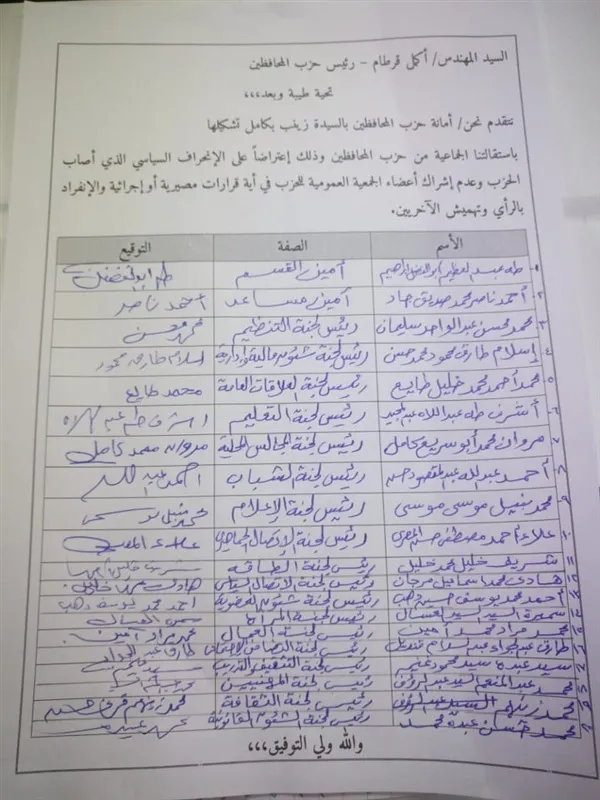 السيد المهندس/ أكمل قرطام - رئيس حزب المحافظين
تحية طيبة وبعد،،،
نتقدم نحن/ أمانة حزب المحافظين بالسيدة زينب بكامل تشكيلها
باستقالتنا الجماعية من حزب المحافظين وذلك إعتراضاً على الإنحراف السياسي الذي أصاب
الحزب وعدم إشراك أعضاء الجمعية العمومية للحزب في أية قرارات مصيرية أو إجرائية والإنفراد
بالرأي وتهميش الآخريين.
الأسم الصفة التوقيع
١- طه عبد العظيم أبو الفضل إبراهيم أمين القسم طه ابو الفضل
٢- أحمد ناصر محمد صديق حماد أمين مساعد احمد ناصر
٣- محمد محسن عبد الواحد سليمان رئيس لجنة التنظيم محمد محسن
٤- إسلام طارق محمود محمد حسن رئيس لجنة شئون مالية وإدارية اسلام طارق محمود
٥- محمد أحمد محمد خليل طايع رئيس لجنة العلاقات العامة محمد طايع
٦- أشرف طه عبد اللاه عبد المجيد رئيس لجنة التعليم اشرف طه عبد اللاه
٧- مروان محمد أبو سريع كامل رئيس لجنة المجالس المحلية مروان محمد كامل
٨- أحمد عبد الله عبد المقصود رئيس لجنة الشباب احمد عبد الله
٩- محمد نبيل موسى موسى رئيس لجنة الإعلام محمد نبيل موسى
١٠- علاء أحمد مصطفى المصرى رئيس لجنة الإتصال الجماهيرى علاء المصرى
١١- شريف خليل محمد خليل رئيس لجنة الطاقة شريف خليل
١٢- هادى محمد اسماعيل مرجان رئيس لجنة الاتصال السياسى
١٣- أحمد محمد يوسف وهب رئيس لجنة شئون العضوية احمد محمد يوسف وهب
١٤- سميرة السيد السيد العسال رئيس لجنة المرأة العسال
١٥- محمد مراد محمد أمين رئيس لجنة العمال محمد مراد أمين
١٦- طارق عبد الجواد عبد السلام رئيس لجنة طارق عبد الجواد
١٧- سيد عبده سيد محمود غنيم رئيس لجنة التثقيف والتدريب سيد غنيم
محمد عبد المنعم السيد عبد الرؤف رئيس لجنة المهنيين
محمد السيد عبد الرؤف رئيس لجنة الثقافة
محمد حسن عبده محمد رئيس لجنة الشئون القانونية
والله ولي التوفيق،،،